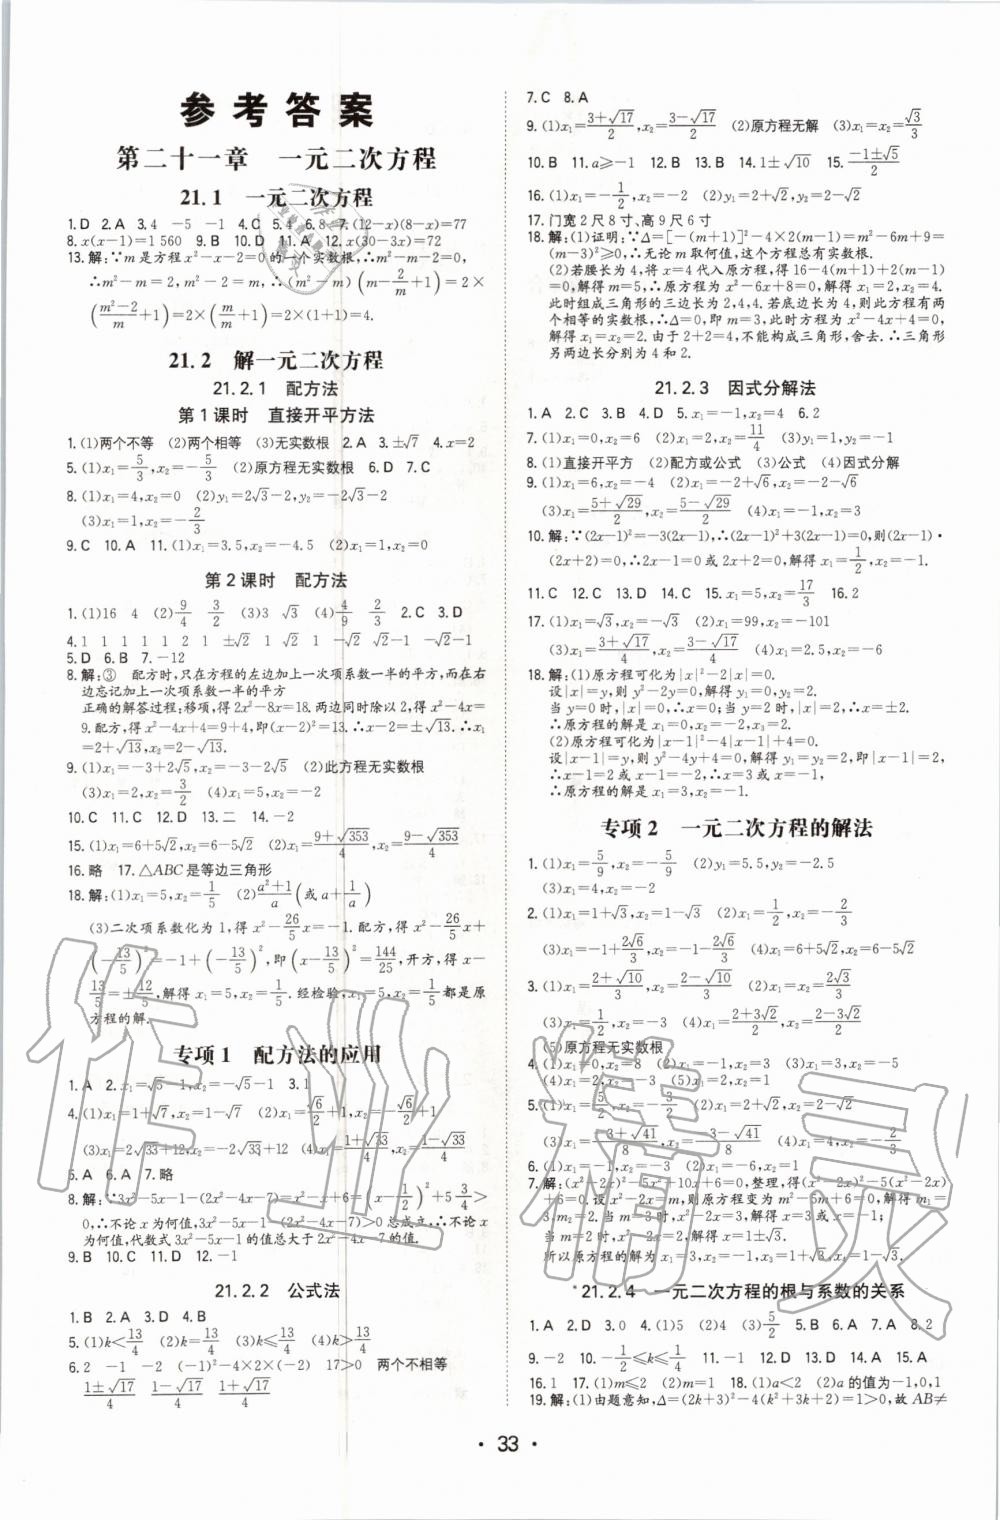 参考答案
第二十一章 一元二次方程
21.1 一元二次方程
1.D 2.A 3.4 －5 －1 4.C 5.4 6.8 7.(12－x)(8－x)=77
8.x(x－1)=1 560 9.B 10.D 11.A 12.x(30－3x)=72
13.解:∵m是方程x²－x－2=0的一个实数根,∴m²－m－2=0,
∴m²－m=2, m²－2=m, ∴(m²－m)(m－2/m+1)=2×
((m²－2)/m+1)=2×(m/m+1)=2×(1+1)=4.
21.2 解一元二次方程
21.2.1 配方法
第1课时 直接开平方法
1.(1)两个不等 (2)两个相等 (3)无实数根 2.A 3.±√7 4.x=2
5.(1)x₁=5/3,x₂=－5/3 (2)原方程无实数根 6.D 7.C
8.(1)x₁=4,x₂=0 (2)y₁=2√3－2,y₂=－2√3－2
(3)x₁=1,x₂=－2/3
9.C 10.A 11.(1)x₁=3.5,x₂=－4.5 (2)x₁=1,x₂=0
第2课时 配方法
1.(1)16 4 (2)9/4 3/2 (3)3 √3 (4)4/9 2/3 2.C 3.D
4.1 1 1 1 1 2 1 ±√2 1 √2 1 －√2 √2－1 －√2－1
5.D 6.B 7.－12
8.解:③ 配方时,只在方程的左边加上一次项系数一半的平方,而在右
边忘记加上一次项系数一半的平方
正确的解答过程:移项,得2x²－8x=18.两边同时除以2,得x²－4x=
9.配方,得x²－4x+4=9+4,即(x－2)²=13.∴x－2=±√13,∴x₁
=2+√13,x₂=2－√13.
9.(1)x₁=－3+2√5,x₂=－3－2√5 (2)此方程无实数根
(3)x₁=2,x₂=3/2 (4)x₁=4,x₂=－2
10.C 11.C 12.D 13.二 14.－2
15.(1)x₁=6+5√2,x₂=6－5√2 (2)x₁=(9+√353)/4,x₂=(9－√353)/4
16.略 17.△ABC是等边三角形
18.解:(1)x₁=5,x₂=1/5 (2)(a²+1)/a(或a+1/a)
(3)二次项系数化为1,得x²－26/5x=－1.配方,得x²－26/5x+
(－13/5)²=－1+(－13/5)²,即(x－13/5)²=144/25,开方,得x－
13/5=±12/5,解得x₁=5,x₂=1/5.经检验,x₁=5,x₂=1/5都是原
方程的解.
专项1 配方法的应用
1.A 2.x₁=√5－1,x₂=－√5－1 3.1
4.(1)x₁=1+√7,x₂=1－√7 (2)x₁=√6/2+1,x₂=－√6/2+1
(3)x₁=2√33+12,x₂=－2√33+12 (4)x₁=(1+√33)/4,x₂=(1－√33)/4
5.A 6.A 7.略
8.解:∵3x²－5x－1－(2x²－4x－7)=x²－x+6=(x－1/2)²+5 3/4>
0,∴不论x为何值,3x²－5x－1－(2x²－4x－7)>0总成立,∴不论x
为何值,代数式3x²－5x－1的值总大于2x²－4x－7的值.
9.B 10.C 11.D 12.－1
21.2.2 公式法
1.B 2.A 3.D 4.B
5.(1)k<13/4 (2)k=13/4 (3)k≤13/4 (4)k>13/4
6.2 －1 －2 (－1)²－4×2×(－2) 17>0 两个不相等
(1±√17)/4 (1+√17)/4 (1－√17)/4
7.C 8.A
9.(1)x₁=(3+√17)/2,x₂=(3－√17)/2 (2)原方程无解 (3)x₁=x₂=√3/3
10.B 11.a≥－1 12.B 13.B 14.1±√10 15.(－1±√5)/2
16.(1)x₁=－1/2,x₂=－2 (2)y₁=2+√2,y₂=2－√2
17.门宽2尺8寸、高9尺6寸
18.解:(1)证明:∵Δ=[－(m+1)]²－4×2(m－1)=m²－6m+9=
(m－3)²≥0,∴无论m取何值,这个方程总有实数根.
(2)若腰长为4,将x=4代入原方程,得16－4(m+1)+2(m－1)
=0,解得m=5,∴原方程为x²－6x+8=0,解得x₁=2,x₂=4.
此时组成三角形的三边长为2,4,4.若底边长为4,则此方程有两
个相等的实数根,∴Δ=0,即m=3,此时方程为x²－4x+4=0,
解得x₁=x₂=2.由于2+2=4,不能构成三角形,舍去.∴三角形
另两边长分别为4和2.
21.2.3 因式分解法
1.A 2.C 3.B 4.D 5.x₁=－1,x₂=4 6.2
7.(1)x₁=0,x₂=6 (2)x₁=2,x₂=11/4 (3)y₁=1,y₂=－1
8.(1)直接开平方 (2)配方或公式 (3)公式 (4)因式分解
9.(1)x₁=6,x₂=－4 (2)x₁=－2+√6,x₂=－2－√6
(3)x₁=(5+√29)/2,x₂=(5－√29)/2 (4)x₁=3,x₂=－1
10.解:∵(2x－1)²=－3(2x－1),∴(2x－1)²+3(2x－1)=0,则(2x－1)·
(2x+2)=0,∴2x－1=0或2x+2=0,解得x₁=1/2,x₂=－1.
11.C 12.C 13.D 14.C 15.x₁=5,x₂=17/3 16.2
17.(1)x₁=√3,x₂=－√3 (2)x₁=99,x₂=－101
(3)x₁=(3+√17)/4,x₂=(3－√17)/4 (4)x₁=6,x₂=2.5
18.解:(1)原方程可化为|x|²－2|x|=0.
设|x|=y,则y²－2y=0,解得y₁=0,y₂=2.
当y=0时,|x|=0,∴x=0;当y=2时,|x|=2,∴x=±2.
∴原方程的解是x₁=0,x₂=－2,x₃=2.
(2)原方程可化为|x－1|²－4|x－1|+4=0.
设|x－1|=y,则y²－4y+4=0,解得y₁=y₂=2,
∴x－1=2或x－1=－2,∴x=3或x=－1,
∴原方程的解是x₁=3,x₂=－1.
专项2 一元二次方程的解法
1.(1)x₁=5/9,x₂=－5/9 (2)y₁=5.5,y₂=－2.5
(3)x₁=4,x₂=－2
2.(1)x₁=1+√3,x₂=1－√3 (2)x₁=1/2,x₂=－2/3
(3)x₁=－1+2√6/3,x₂=－1－2√6/3 (4)x₁=6+5√2,x₂=6－5√2
3.(1)x₁=(2+√10)/3,x₂=(2－√10)/3 (2)x₁=x₂=2√3/3
(3)x₁=1/2,x₂=－3 (4)x₁=(2+3√2)/2,x₂=(2－3√2)/2
(5)原方程无实数根
4.(1)x₁=0,x₂=8 (2)x₁=－1,x₂=3 (3)x₁=3,x₂=－5
(4)x₁=2,x₂=3 (5)x₁=x₂=2
5.(1)x₁=5/2,x₂=－2 (2)x₁=2+√2,x₂=2－√2
(3)x₁=(－3+√41)/8,x₂=(－3－√41)/8 (4)x₁=4,x₂=－2/3
6.(1)x₁=－1,x₂=－3 (2)x₁=6,x₂=－2
7.解:(x²－2x)²－5x²+10x+6=0,整理,得(x²－2x)²－5(x²－2x)
+6=0.设x²－2x=m,则原方程变为m²－5m+6=0,解得m₁=
3,m₂=2.当m=3时,x²－2x=3,解得x=3或x=－1;
当m=2时,x²－2x=2,解得x=1±√3.
所以原方程的解为x₁=3,x₂=－1,x₃=1+√3,x₄=1－√3.
*21.2.4 一元二次方程的根与系数的关系
1.A 2.D 3.0 4.(1)5 (2)4 (3)5/2 5.B 6.A 7.A 8.2
9.－2 10.－1/2≤k≤1/4 11.－1 12.D 13.D 14.A 15.A
16.1 17.(1)m≤2 (2)m=1 18.(1)a<2 (2)a的值为－1,0,1
19.解:(1)由题意知,Δ=(2k+3)²－4(k²+3k+2)=1>0,故AB≠
· 33 ·
作业精灵